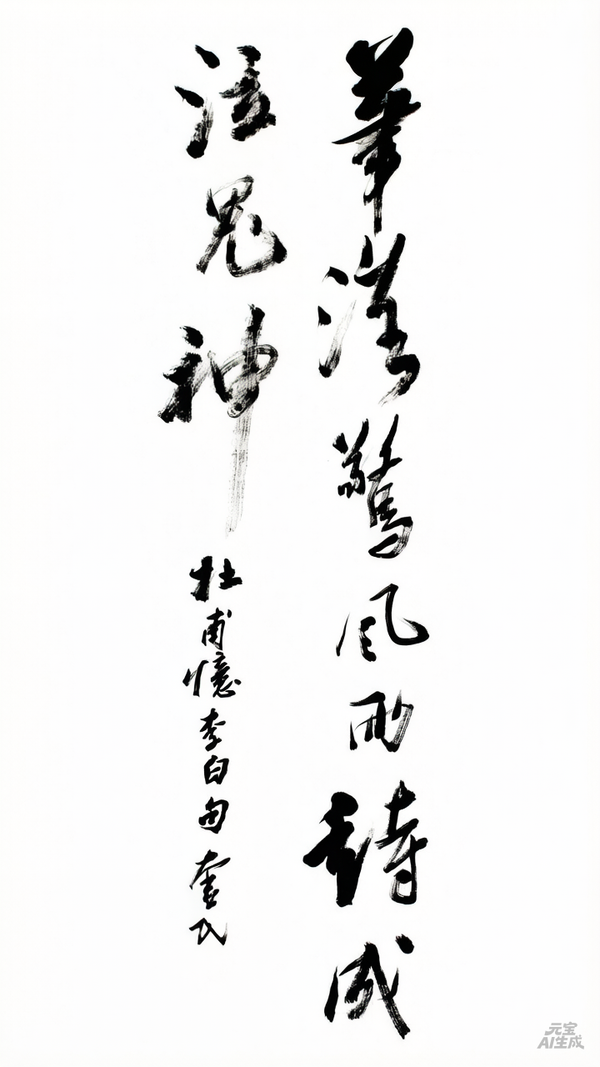 筆落驚風雨詩成
泣鬼神
杜甫憶李白句
元宝
AI生成